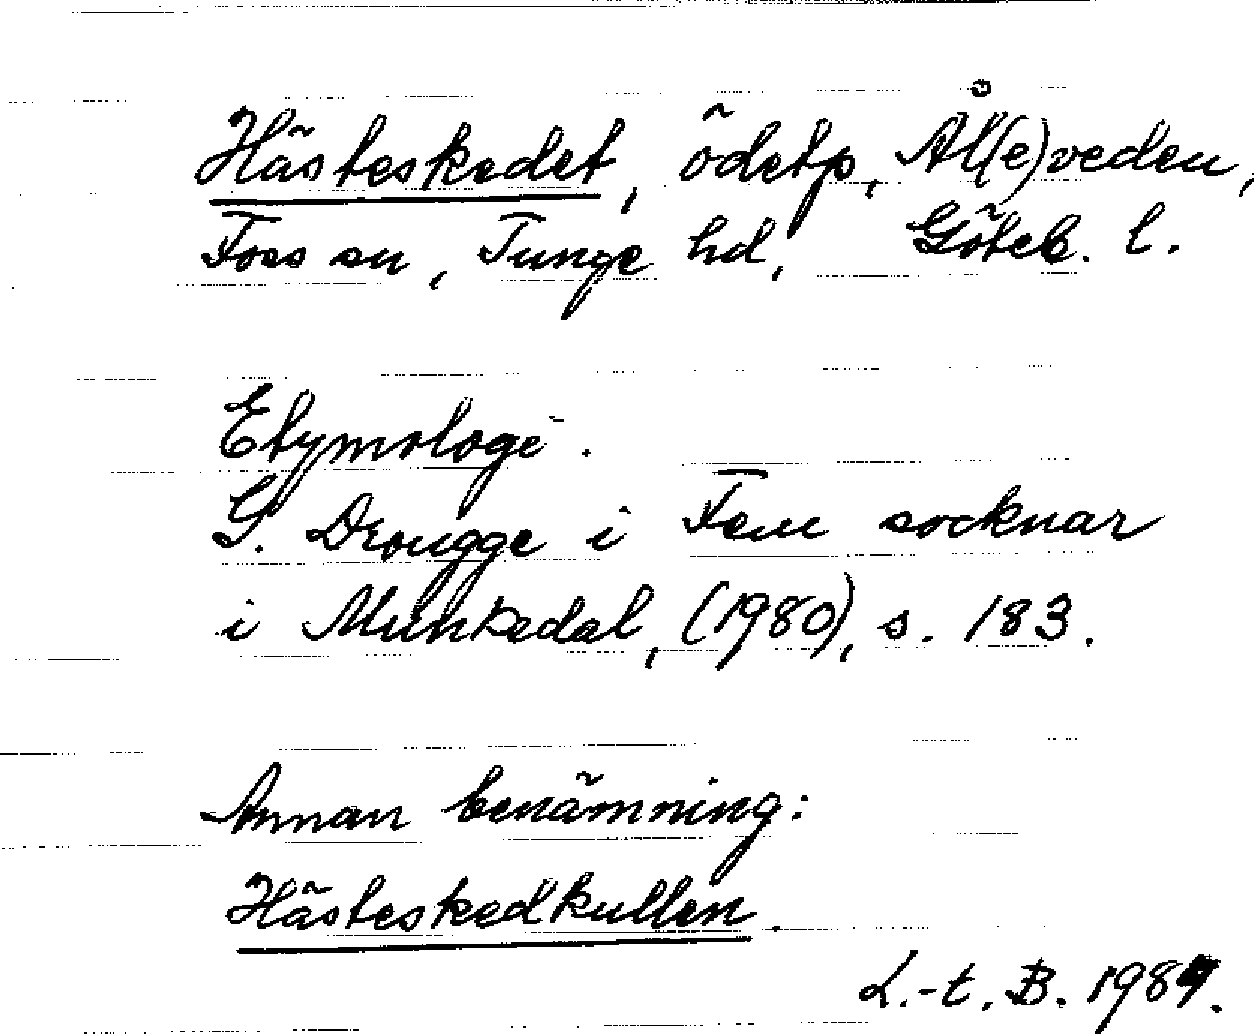 Hästeskedet, ödetp, Ål(e)veden,
Foss sn, Tunge hd, Göteb. l.
Etymologi.
G. Drougge i Fem socknar
i Munkedal, (1980), s. 183.
Annan benämning:
Hästeskedkullen.
L.-t. B.